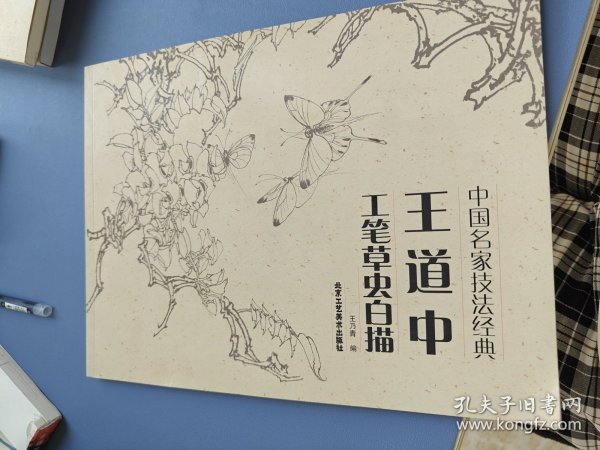 中国名家技法经典
王道中
工笔草虫白描
王乃青 编
北京工艺美术出版社
孔夫子旧书网
www.kongfz.com